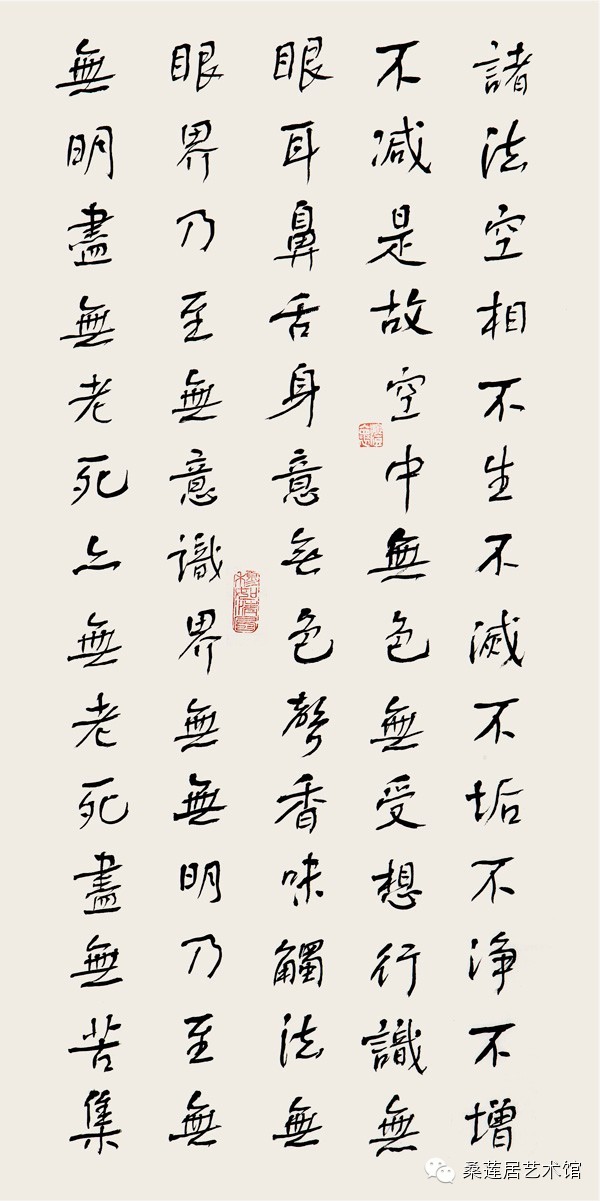 諸法空相不生不滅不垢不淨不增
不減是故空中無色無受想行識無
眼耳鼻舌身意无色聲香味觸法無
眼界乃至無意識界無無明乃至無
無明盡無老死亦無老死盡無苦集
桑莲居艺术馆